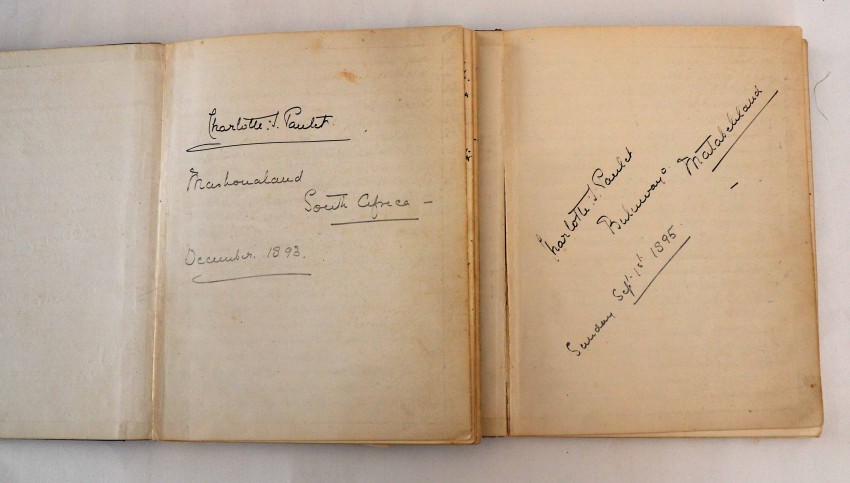 Charlotte: S. Paulet.
Mashonaland
South Africa –
December. 1893.
Charlotte S. Paulet
Buluwayo
Matabeleland
Sunday Sept 1st 1895.